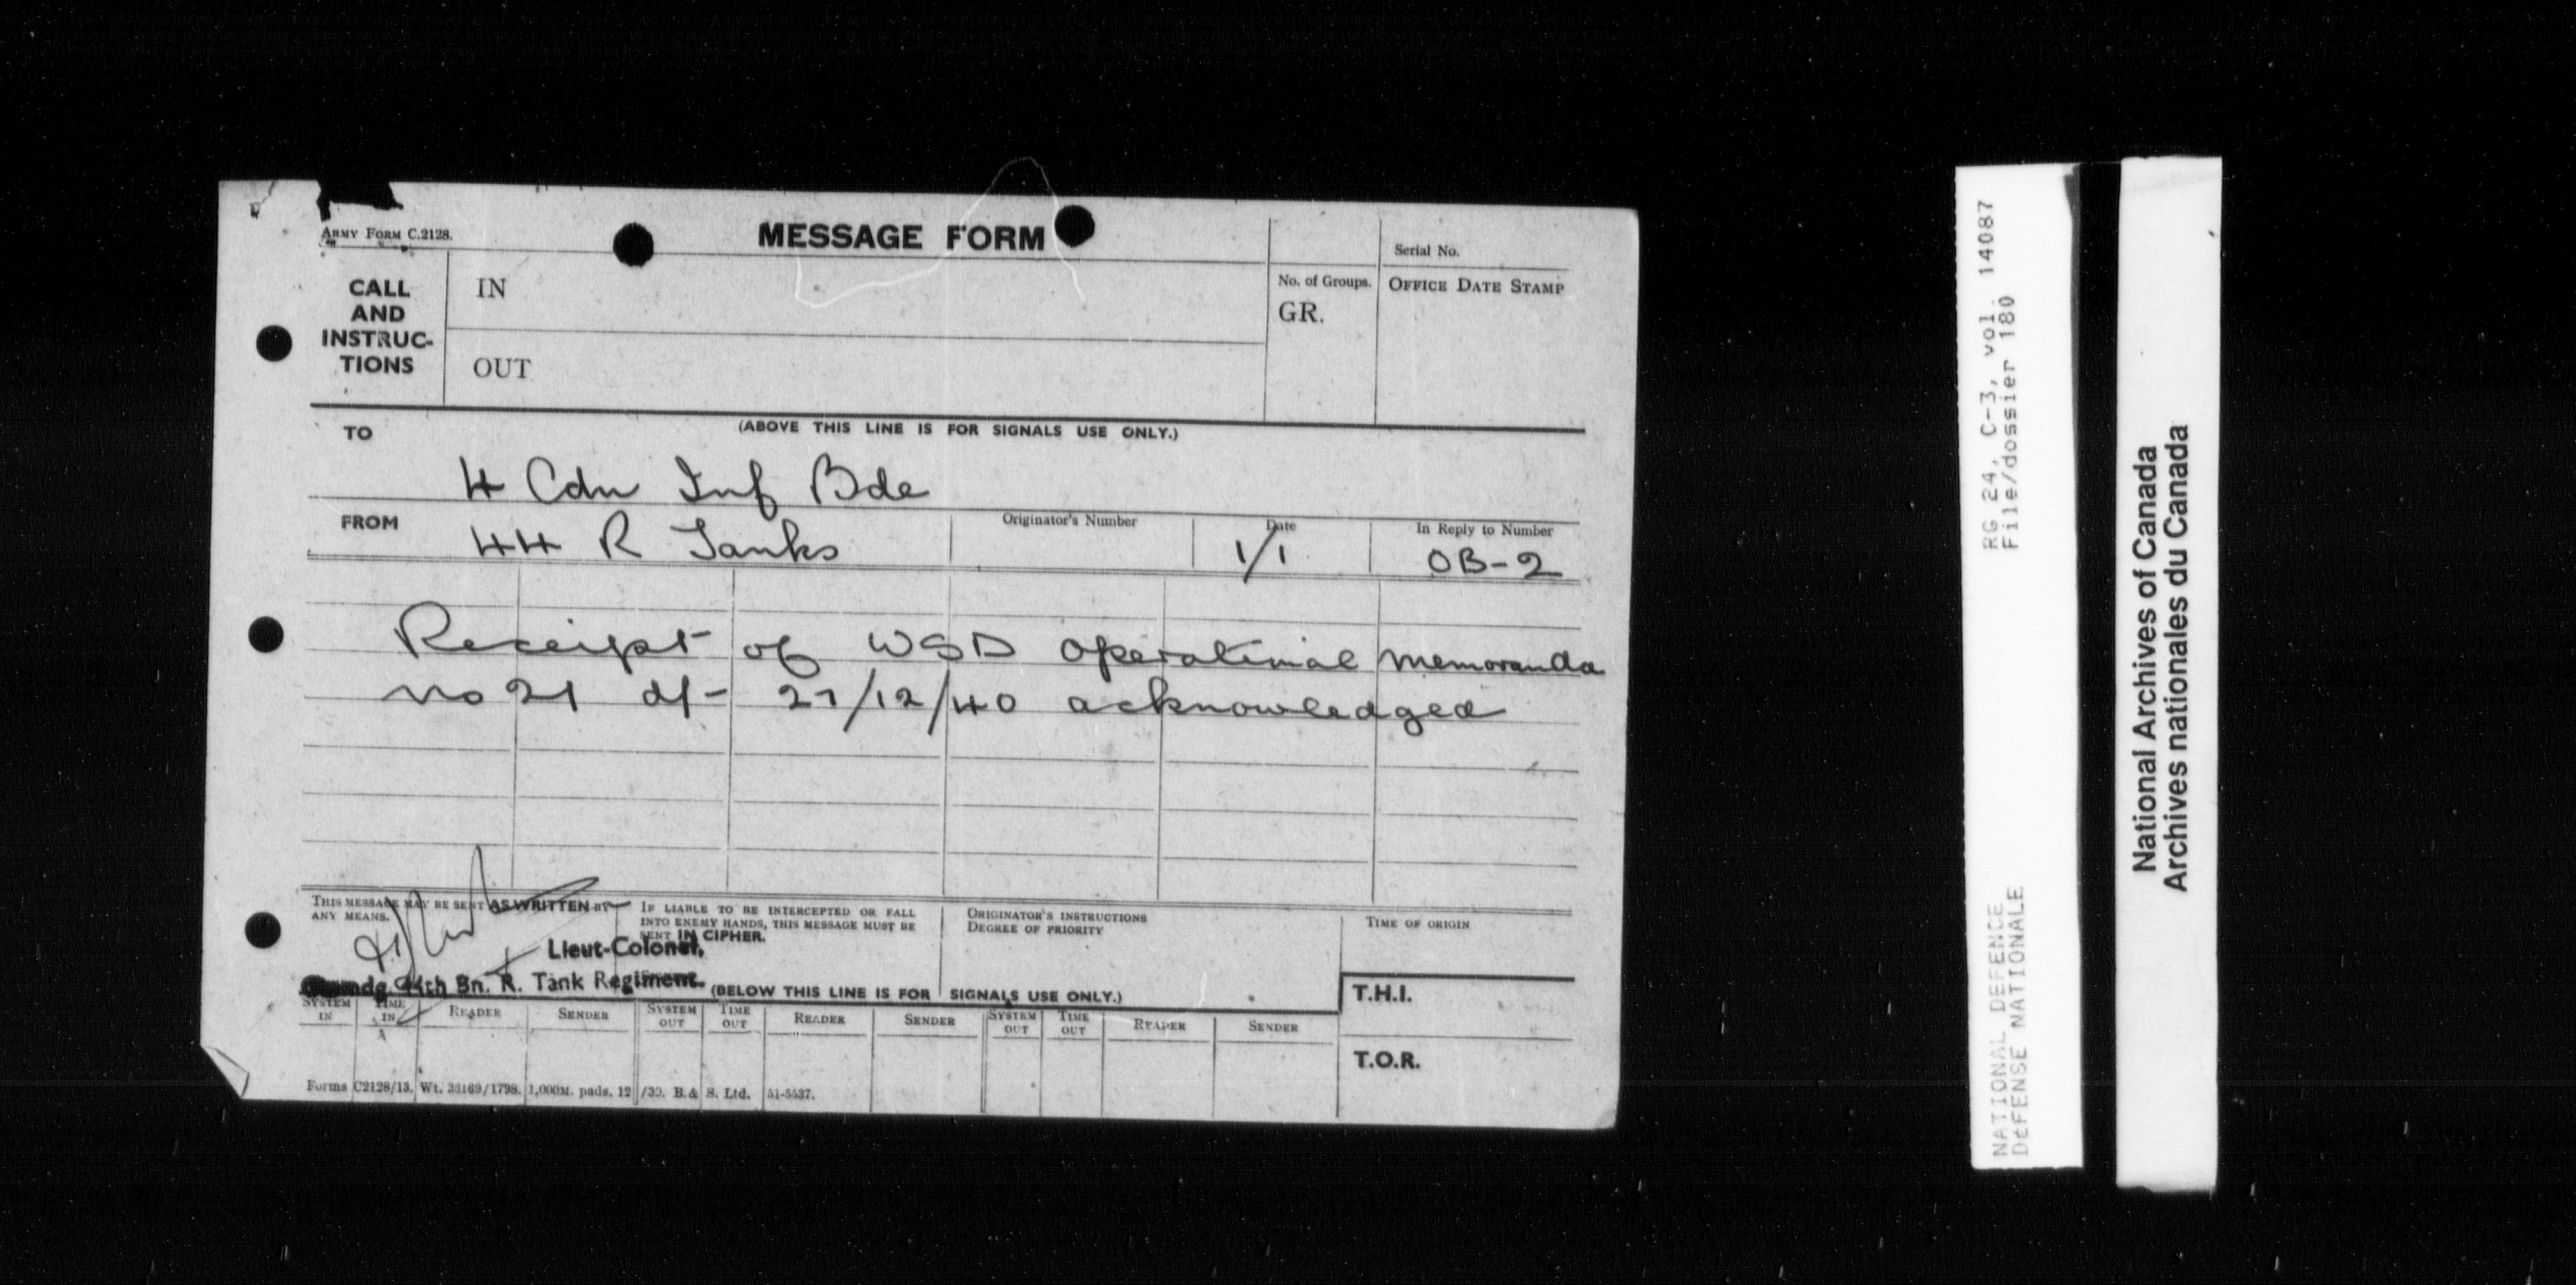 ARMY FORM C.2128.
MESSAGE FORM
Serial No.
CALL
AND
INSTRUC-
TIONS
IN
OUT
No. of Groups.
GR.
OFFICE DATE STAMP
(ABOVE THIS LINE IS FOR SIGNALS USE ONLY.)
TO
4 Cdn Inf Bde
FROM
44 R Tanks
Originator's Number
Date
1/1
In Reply to Number
OB-2
Receipt of WSD operational memoranda
no 21 dt- 27/12/40 acknowledged
THIS MESSAGE MAY BE SENT AS WRITTEN BY
ANY MEANS.
IF LIABLE TO BE INTERCEPTED OR FALL
INTO ENEMY HANDS, THIS MESSAGE MUST BE
SENT IN CIPHER.
ORIGINATOR'S INSTRUCTIONS
DEGREE OF PRIORITY
TIME OF ORIGIN
Lieut-Colonel,
44th Bn. R. Tank Regiment.
(BELOW THIS LINE IS FOR SIGNALS USE ONLY.)
T.H.I.
SYSTEM IN
TIME IN
READER
SENDER
SYSTEM OUT
TIME OUT
READER
SENDER
SYSTEM OUT
TIME OUT
READER
SENDER
T.O.R.
Forms C2128/13. Wt. 36169/1798. 1,000M. pads. 12/39. B.& S. Ltd. 51-5537.
RG 24, C-3, vol. 14087
File/dossier 180
NATIONAL DEFENCE
DéFENSE NATIONALE
National Archives of Canada
Archives nationales du Canada